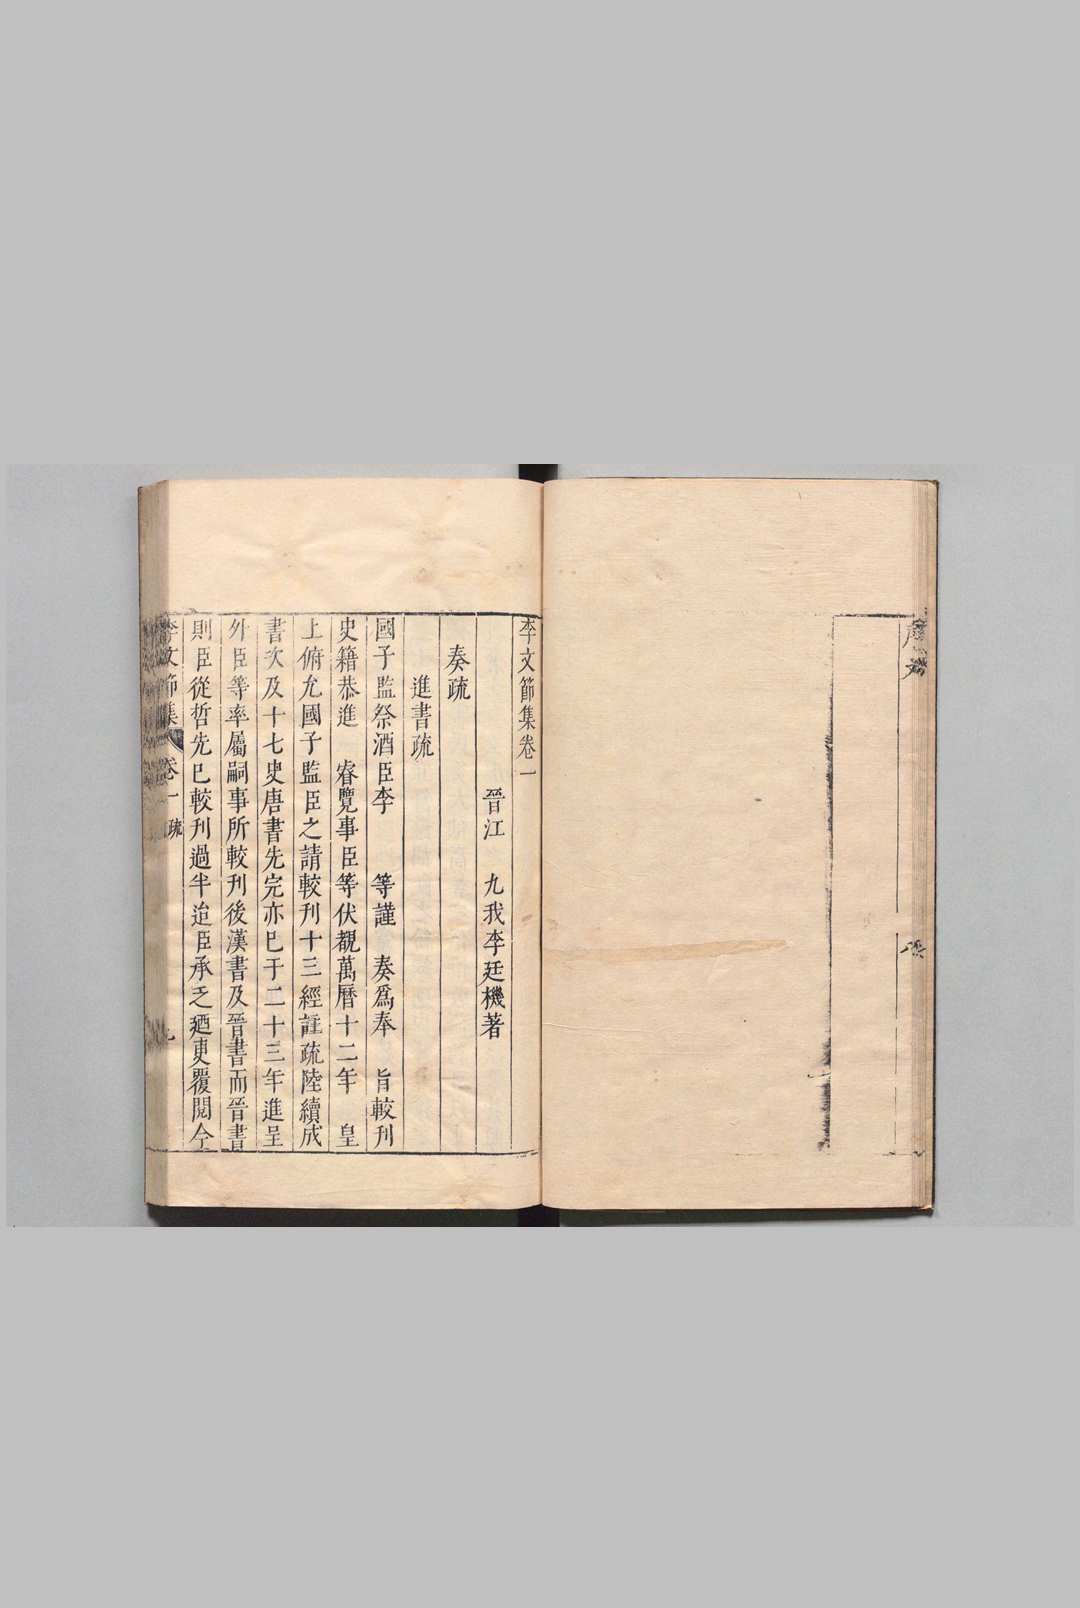 李文節集卷一
晉江　九我李廷機著
奏疏
進書疏
國子監祭酒臣李　等謹　奏爲奉　旨較刊
史籍恭進　睿覽事臣等伏覩萬曆十二年　皇
上俯允國子監臣之請較刊十三經註疏陸續成
書次及十七史唐書先完亦已于二十三年進呈
外臣等率屬嗣事所較刊後漢書及晉書而晉書
則臣從哲先已較刊過半迨臣承乏廼更覆閱今
李文節集　卷一　疏